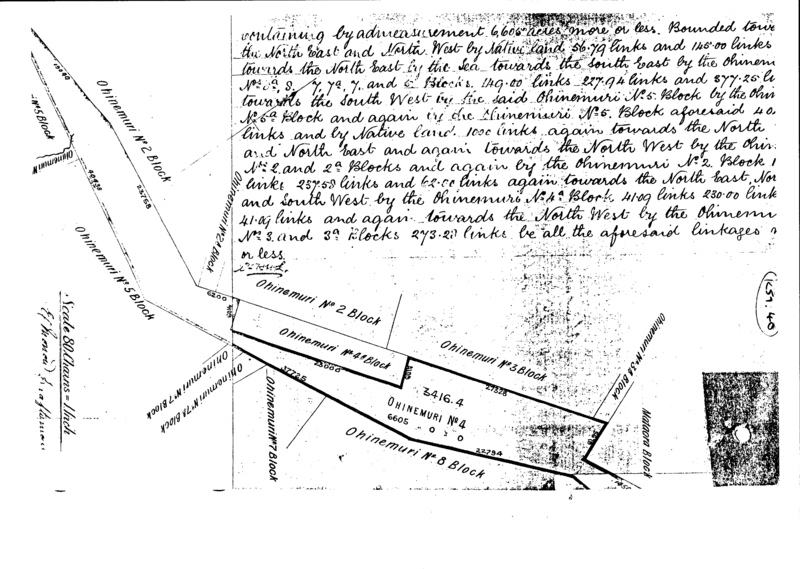 containing by admeasurement 6,605 acres more or less. Bounded
the North East and North West by Native land 56.79 links and 145.00 links
towards the North East by the Sea towards the South East by the
Nos 8, 7, 7a, 7, and Blocks. 149.00 links 227.94 links and 377.25
towards the South West by the said Ohinemuri No 5. Block by the
No 5a Block and again by the Ohinemuri No 5. Block aforesaid
links and by Native land 1000 links again towards the North
and North East and again towards the North West by the
No 2 and 2a Blocks and again by the Ohinemuri No 2 Block
links 237.58 links and 62.00 links again towards the North East,
and South West by the Ohinemuri No 4a Block 41.09 links 230.00
41.09 links and again towards the North West by the
Nos 3. and 3a Blocks 273.28 links be all the aforesaid linkages
or less
Ohinemuri No 2 Block
23758
No 5 Block
Ohinemuri N
Ohinemuri No 5 Block
Ohinemuri No 2A Block
6200
Ohinemuri No 2 Block
Ohinemuri No 4a Block
23000
Ohinemuri No 3 Block
27328
Ohinemuri No 3a Block
Mataora Block
3416.4
OHINEMURI No 4
6605 - 0 - 0
37725
22794
Ohinemuri No 8 Block
Ohinemuri No 7 Block
Ohinemuri No 7A Block
Ohinemuri No 7 Block
Scale 80 Chains = 1 Inch
(157.40)